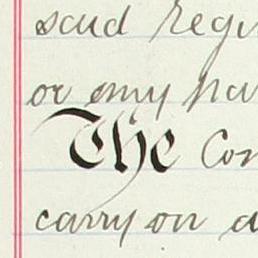 said Regi
or any ha
The Con
carry on a